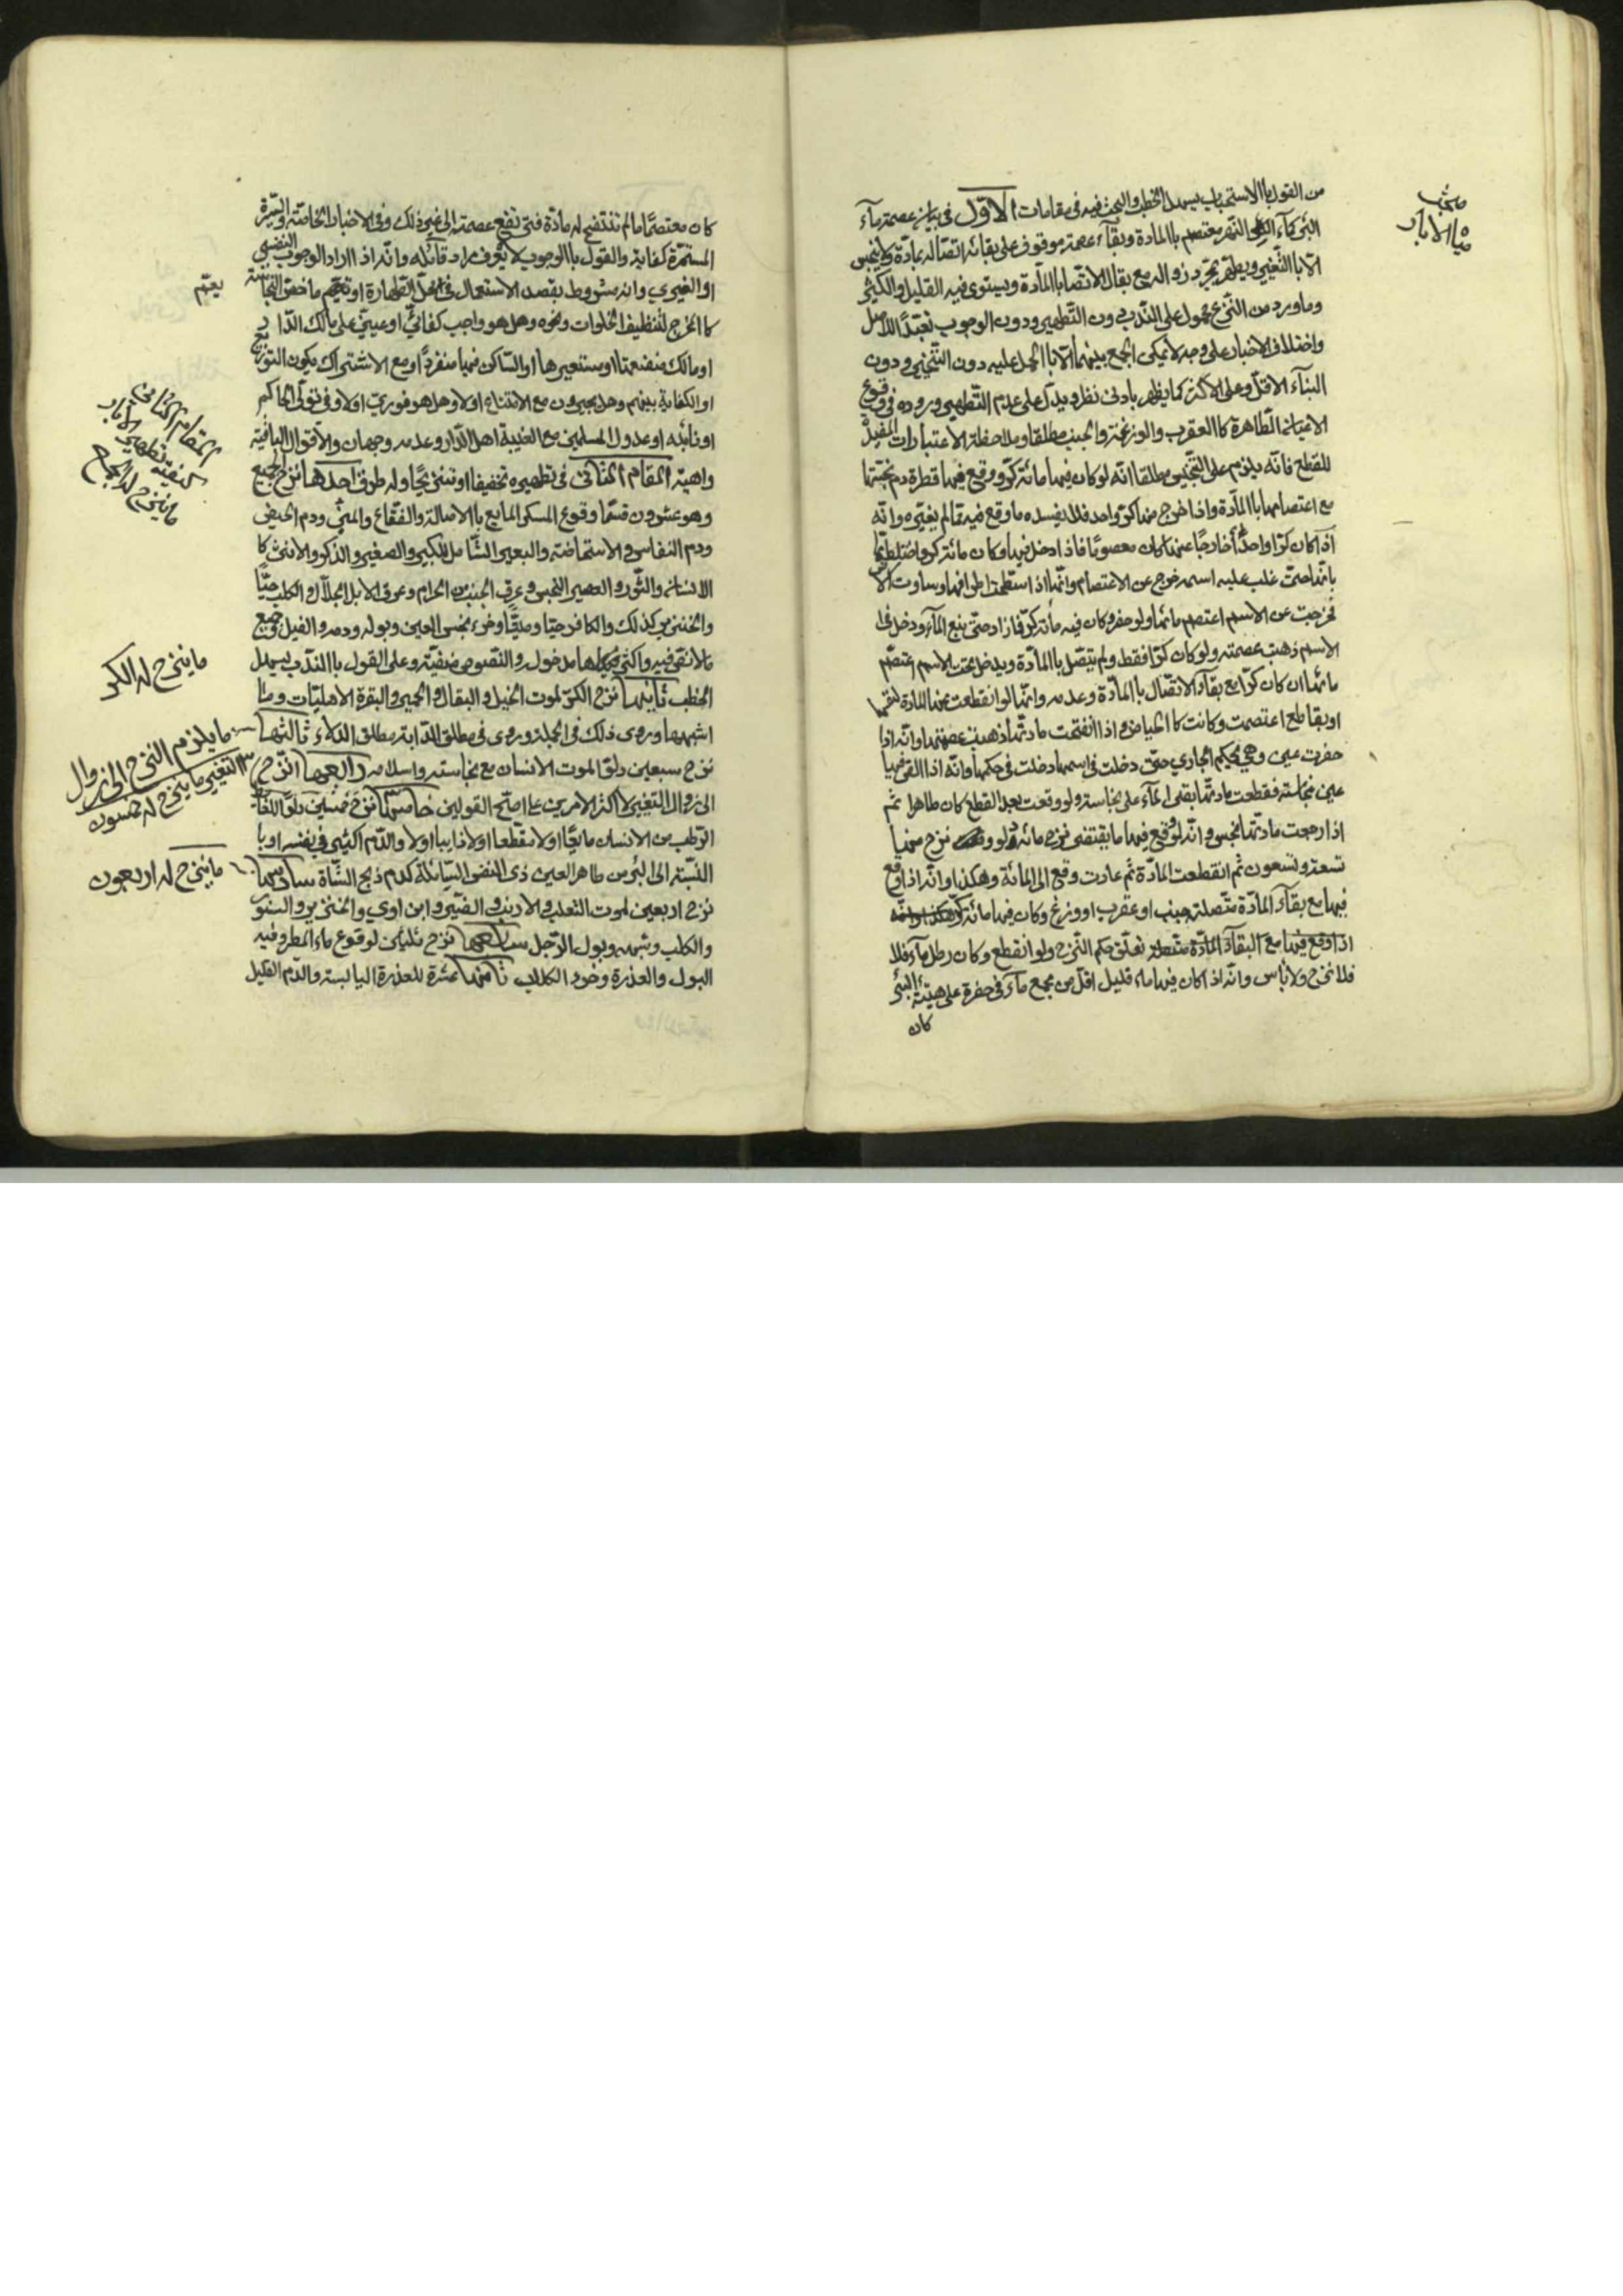 مبحث
مياه الابار
من القول بالاستحباب يسهل الخطب والبحث فيه في مقامات الاوّل في بيان عصمة ماء
البئر كماء النهر معتصم باالمادة وبقاء عصمته موقوف على بقائه اتصاله بمادّة فلا ينجس
الّا باالتّغيير ويطهر بمجرّد زواله مع بقاء الاتّصال باالمادّة ويستوى فيه القليل والكثير
وما ورد من النّزح محمول على النّدب دون التّطهير ودون الوجوب تعبّداً للاصل
واختلاف الاخبار على وجه لا يمكن الجمع بينهما الّا باالحمل عليه دون التّنجيس ودون
البناء الاقلّ وعلى الاكثر كما يظهر بادنى نظر ويدلّ على عدم التّطهير وروده في وقوع
الاعيان الطّاهرة كاالعقرب والوزغة والجنب مطلقا وملاحظة الاعتبارات المفيدة
للقطع فانّه يلزم على التّنجيس مطلقا انّه لو كان فيها مائة كرّ ووقع فيها قطرة دم نجّستها
مع اعتصامها باالمادّة واذا خرج منها كرّ واحد فلا يفسده ما وقع فيه ما لم يغيّره وانّه
اذا كان كرّا واحدًا خارجًا عنها كان معصومًا فاذا دخل فيها وكان مائة كرّ واختلط بها
بانّها متى غلب عليه اسمه خرج عن الاعتصام وانّها اذا استطمّت اطرافها وساوت الارض
فخرجت عن الاسم اعتصم مائها ولو حفر وكان فيه مائة كرّ فازاد حتّى ينبع الماء ودخل في
الاسم ذهبت عصمته ولو كان كرّا فقط ولم يتّصل باالمادّة ويدخل تحت الاسم اعتصم
مائها ان كان كرّا مع بقاء الاتّصال باالمادّة وعدمه وانّها لو انقطعت عنها المادّة لنقصها
او بقاطع اعتصمت وكانت كاالحياض واذا انفتحت مادتّها ذهبت عصمتها وانّه اذا
حفرت عين وهي بحكم الجاري حتّى دخلت في اسمها دخلت في حكمها وانّه اذا القى فيها
عين نجاسة فقطعت مادتّها بقى الماء على نجاسته ولو وقعت بعد القطع كان طاهرا ثم
اذا رجعت مادتّها نجس وانّه لو وقع فيها ما يقتضى نزح مائة دلو وقد نزح منها
تسعة وتسعون ثم انقطعت المادّة ثم عادت وقع الى المائة وهكذا وانّه اذا وقع
فيها مع بقاء المادّة متّصلة جنب او عقرب او وزغ وكان فيها مائة كرّ
اذا وقع فيها مع البقاء المادّة متّصلة تعلّق حكم النّزح ولو انقطع وكان رطل ماء فلا
فلا نزح ولا باس وانّه اذا كان فيها ماء قليل اقلّ من مجمع ماء في حفرة على هيئة البئر
كان
كان معتصمًا ما لم تنفتح له مادّة فتى تقع عصمته الى غير ذلك وفي الاخبار الخاصّة والسّيرة
المستمرّة كفاية والقول باالوجوب لا يعرف مراد قائله وانّه اذا اراد الوجوب النفسي
او الغيري وانه مشروط بقصد الاستعمال في محلّ الطّهارة او يعمّ ما خفّف النجاسة
يعمّ
كاالخرج لتنظيف الخلوات ونحوه وهل هو واجب كفائيّ او عينيّ على مالك الدّار
او مالك منفعتها او مستعيرها او السّاكن فيها منفردًا او مع الاشتراك يكون التوزيع
او الكفاية بينهم وهل يجبرون مع الامتناع اولا وهل هو فوريّ اولا وفي تولّى الحاكم
او نائبه او عدول المسلمين مع الغيبة اهل الدّار وعدمه وجهان والاقوال الباقية
واهية المقام الثاني في تطهيره تخفيفا او تنزيحًا وله طرق احدها نزح الجميع
المقام الثاني في
كيفيّة تطهير الابار
ما ينزح له الجميع
وهو عشرون قسمًا وقوع المسكر المايع باالاصالة والفقّاع والمنيّ ودم الحيض
ودم النفاس والاستحاضة والبعير الشّامل للكبير والصغير والذكر والانثى كا
الانسان والثّور والعصير النجس وعرق الجنب من الحرام وعرق الابل الجلّال والكلب حيًّا
والخنزير كذلك والكافر حيّا وميتًا وخرء نجس العين وبوله ودمه والفيل وجميع
مالا نصّ فيه واكثر دليلها مدخول والنّصوص ضعيفة وعلى القول باالنّدب يسهل
ما ينزح له الكر
الخطب ثانيها نزح الكرّ لموت الخيل والبقال والحمير والبقرة الاهليّات وما
اشبهها وروى ذلك في الجملة وروى في مطلق الدّابة مطلق الدلاء ثالثها
نزح سبعين دلوًا لموت الانسان مع نجاسته واسلامه رابعها النّزح
ما يلزم النزح الى زوال
التغيير ما ينزح له خمسون
الى زوال التغيير لا اكثر الامرين على اصحّ القولين خامسها نزح خمسين دلوًا للغايط
الرّطب من الانسان مايعًا اولا متقطّعا اولا ذايبا اولا والدّم الكثير في نفسه او با
النّسبة الى البئر من طاهر العين ذى النفس السّائلة كدم ذبح الشّاة سادسها
ما ينزح له اربعون
نزح اربعين لموت الثعلب والارنب والضبّ وابن اوي والخنزير والسنّور
والكلب وشبهه وبول الرّجل سابعها نزح ثلثين لوقوع ماء المطر وفيه
البول والعذرة وخرء الكلاب ثامنها عشرة للعذرة اليابسة والدّم القليل